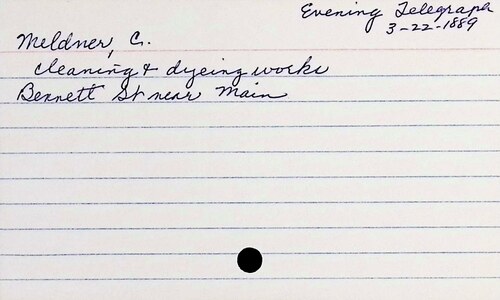 Evening Telegraph
3-22-1889
Meldner, C.
cleaning & dyeing works
Bennett St near Main